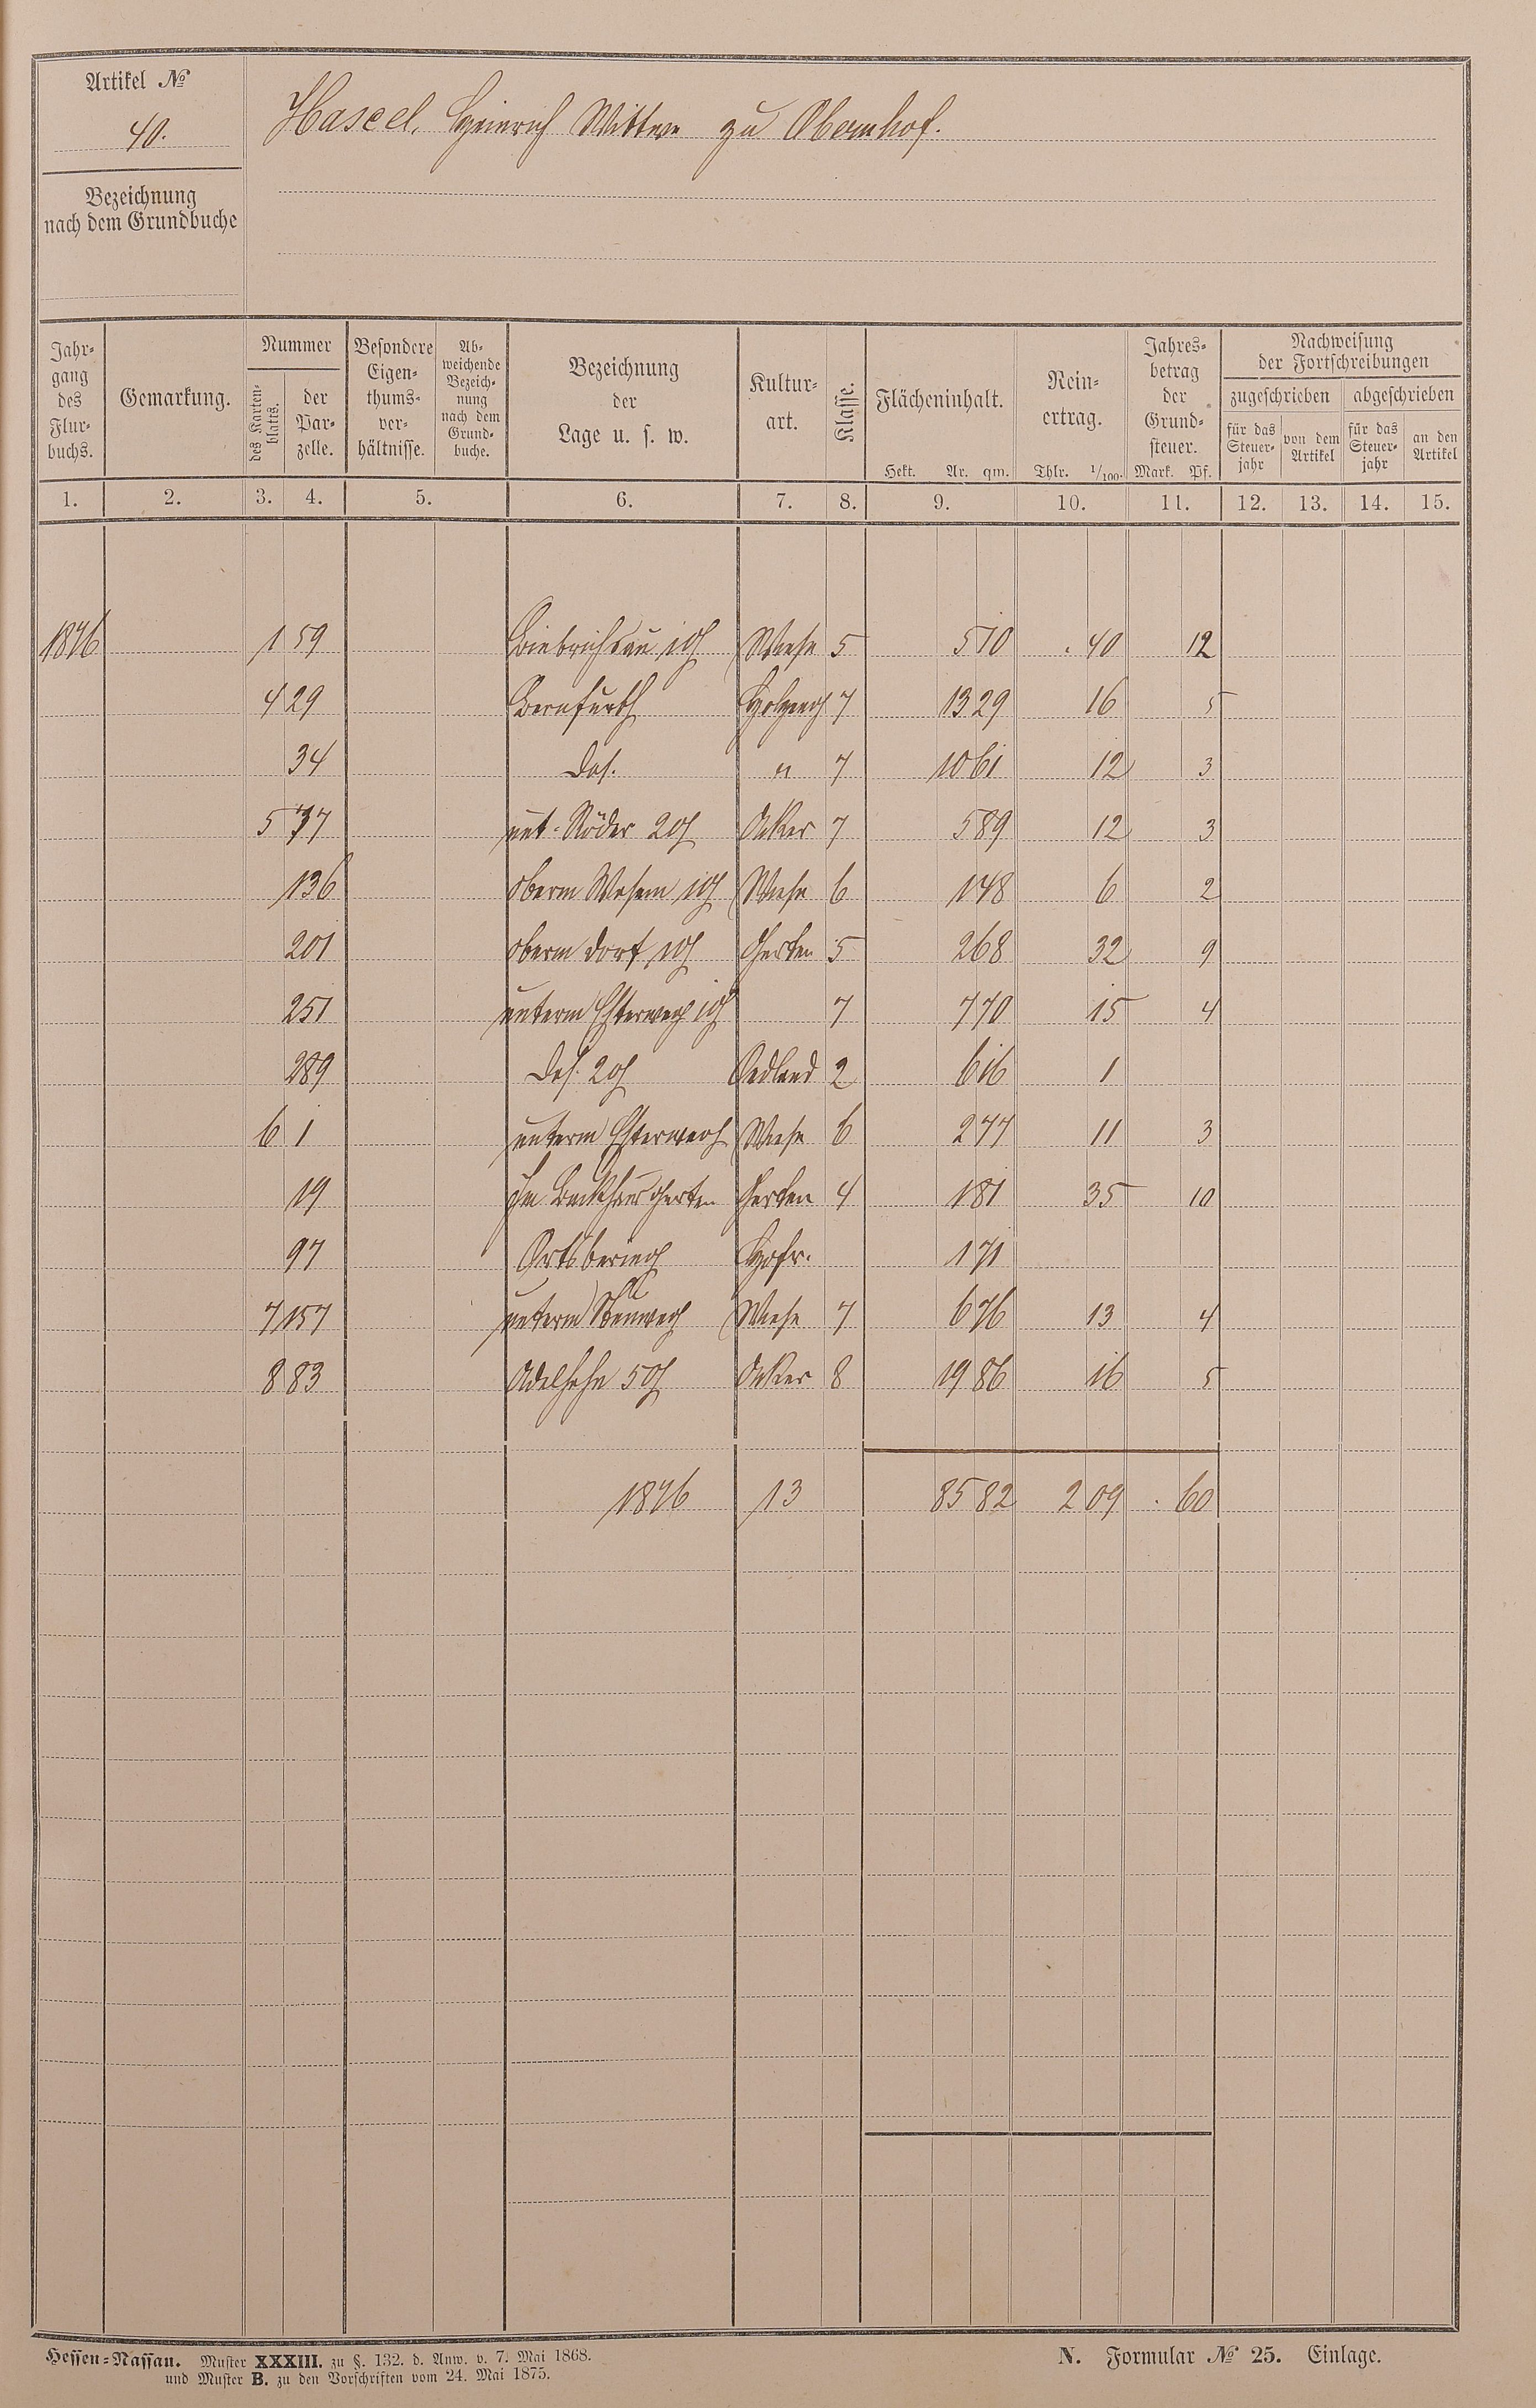 Artikel №
40.
Hascel, Heinrich Wittwe zu Obernhof.
Bezeichnung
nach dem Grundbuche
Jahr-
gang
des
Flur-
buchs.
Gemarkung.
Nummer
des Karten-
blatts.
der
Par-
zelle.
Besondere
Eigen-
thums-
ver-
hältnisse.
Ab-
weichende
Bezeich-
nung
nach dem
Grund-
buche.
Bezeichnung
der
Lage u. s. w.
Kultur-
art.
Klasse.
Flächeninhalt.
Hekt. Ar. qm.
Rein-
ertrag.
Thlr. 1/100.
Jahres-
betrag
der
Grund-
steuer.
Mark. Pf.
Nachweisung
der Fortschreibungen
zugeschrieben abgeschrieben
für das
Steuer-
jahr
von dem
Artikel
für das
Steuer-
jahr
an den
Artikel
1. 2. 3. 4. 5. 6. 7. 8. 9. 10. 11. 12. 13. 14. 15.
1876 1 59 Wiese 5 5 10 . 40 12
4 29 7 13 29 16 5
34 das. " 7 10 61 12 3
5 77 unt. Röder 2 Acker 7 5 89 12 3
136 oberm Wiese 6 1 48 6 2
201 oberm Dorf 1 Garten 5 2 68 32 9
251 unterm 7 7 70 15 4
289 das. 2 Oedland 2 6 16 1
6 1 unterm Wiese 6 2 77 11 3
19 Im Backhausgarten Garten 4 1 81 35 10
97 Ortsbering Hofr. 1 71
7 157 unterm Wiese 7 6 76 13 4
8 83 5 Acker 8 19 86 16 5
1876 13 85 82 2 09 . 60
Hessen-Nassau. Muster XXXIII. zu §. 132. d. Anw. v. 7. Mai 1868.
und Muster B. zu den Vorschriften vom 24. Mai 1875.
N. Formular № 25. Einlage.